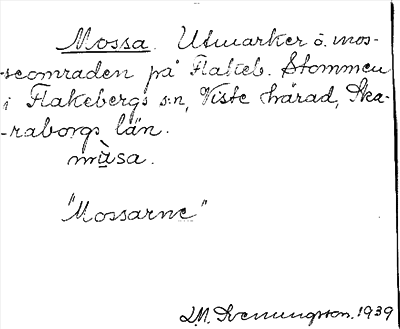 Mossa. Utmarker ö. mos-
-seområden på Flakeb. Stommen
i Flakebergs s:n, Viste härad, Ska-
-raborgs län.
mùsa.
"Mossarne"
L.M. Svenungsson. 1939